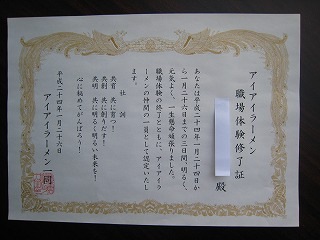 アイアイラーメン
職場体験修了証
殿
あなたは平成二十四年一月二十四日か
ら一月二十六日までの三日間、明るく、
元気よく、一生懸命頑張りました。
職場体験の終了とともに、アイアイラ
ーメンの仲間の一員として認定いたし
ます。
社訓
共育 共に育つ!
共創 共に創りだす!
共明 共に明るく明るい未来を!
心に秘めてがんばろう!
平成二十四年一月二十六日
アイアイラーメン一同